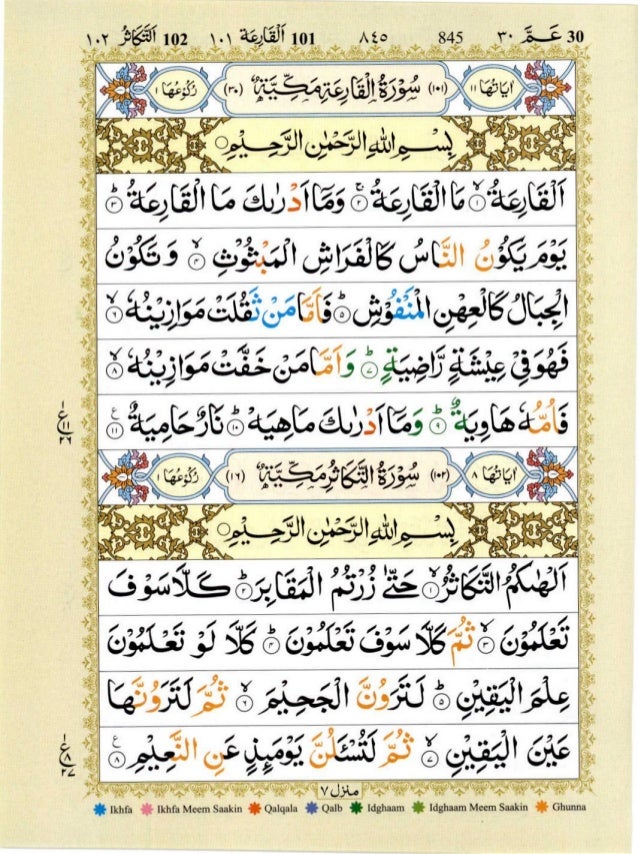 ١٠٢ اَلتَّكَاثُر 102 ١٠١ اَلْقَارِعَة 101 ٨٤٥ 845 ٣٠ عَـمَّ 30
اٰيَاتُهَا ١١ (١٠١) سُوْرَةُ الْقَارِعَةِ مَكِّيَّةٌ (٣٠) رُكُوْعُهَا ١
بِسْمِ اللّٰهِ الرَّحْمٰنِ الرَّحِيْمِ
اَلْقَارِعَةُ ۙ﴿١﴾ مَا الْقَارِعَةُ ۚ﴿٢﴾ وَمَاۤ اَدْرٰىكَ مَا الْقَارِعَةُ ؕ﴿٣﴾
يَوْمَ يَكُوْنُ النَّاسُ كَالْفَرَاشِ الْمَبْثُوْثِ ۙ﴿٤﴾ وَتَكُوْنُ
الْجِبَالُ كَالْعِهْنِ الْمَنْفُوْشِ ؕ﴿٥﴾ فَاَمَّا مَنْ ثَقُلَتْ مَوَازِيْنُهٗ ۙ﴿٦﴾
فَهُوَ فِيْ عِيْشَةٍ رَّاضِيَةٍ ؕ﴿٧﴾ وَاَمَّا مَنْ خَفَّتْ مَوَازِيْنُهٗ ۙ﴿٨﴾
فَاُمُّهٗ هَاوِيَةٌ ؕ﴿٩﴾ وَمَاۤ اَدْرٰىكَ مَاهِيَهْ ؕ﴿١٠﴾ نَارٌ حَامِيَةٌ ﴿١١﴾ ع
١١ ع ٢٦
اٰيَاتُهَا ٨ (١٠٢) سُوْرَةُ التَّكَاثُرِ مَكِّيَّةٌ (١٦) رُكُوْعُهَا ١
بِسْمِ اللّٰهِ الرَّحْمٰنِ الرَّحِيْمِ
اَلْهٰىكُمُ التَّكَاثُرُ ۙ﴿١﴾ حَتّٰى زُرْتُمُ الْمَقَابِرَ ؕ﴿٢﴾ كَلَّا سَوْفَ
تَعْلَمُوْنَ ۙ﴿٣﴾ ثُمَّ كَلَّا سَوْفَ تَعْلَمُوْنَ ؕ﴿٤﴾ كَلَّا لَوْ تَعْلَمُوْنَ
عِلْمَ الْيَقِيْنِ ؕ﴿٥﴾ لَتَرَوُنَّ الْجَحِيْمَ ۙ﴿٦﴾ ثُمَّ لَتَرَوُنَّهَا
عَيْنَ الْيَقِيْنِ ۙ﴿٧﴾ ثُمَّ لَتُسْـَٔلُنَّ يَوْمَىِٕذٍ عَنِ النَّعِيْمِ ﴿٨﴾ ع
٨ ع ٢٧
منزل ٧
Ikhfa Ikhfa Meem Saakin Qalqala Qalb Idghaam Idghaam Meem Saakin Ghunna